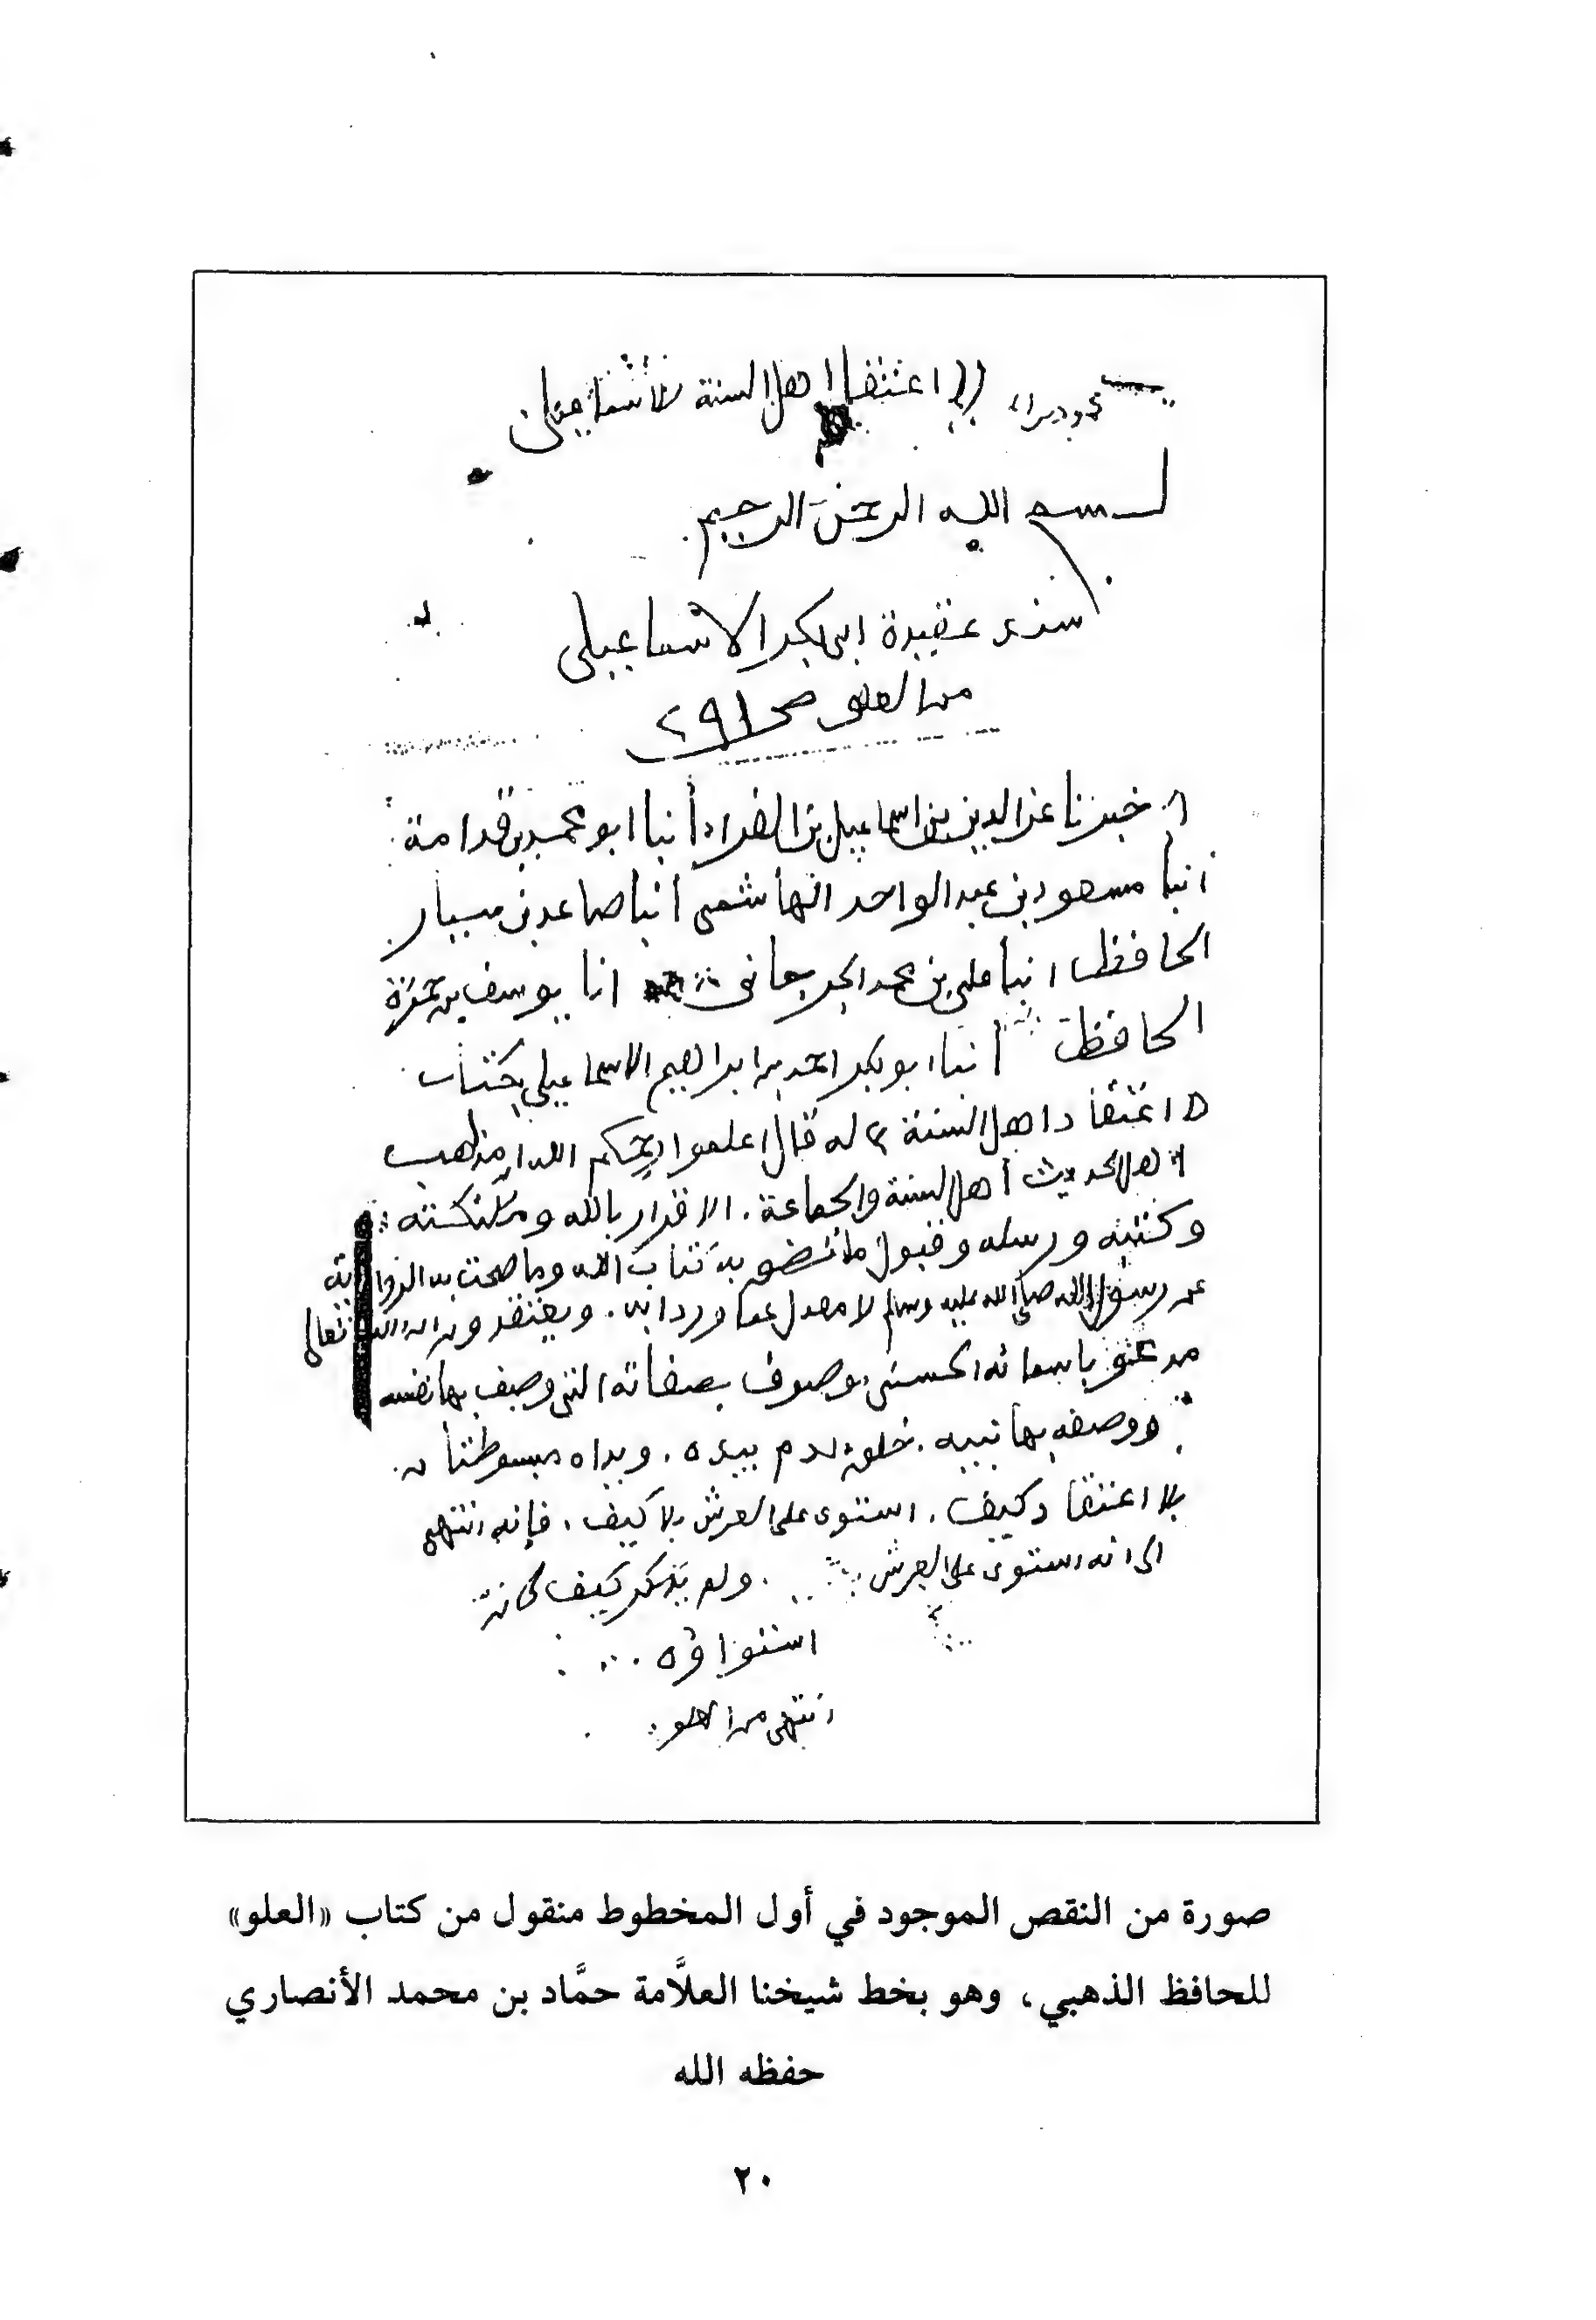 اعتقاد اهل السنة للاسماعيلى
بسم الله الرحمن الرحيم
سند عقيدة ابى بكر الاسماعيلى
من العلو ص ٢٩١
أخبرنا عز الدين بن اسماعيل بن الفراء أنبا ابو محمد بن قدامة
انبا مسعود بن عبد الواحد الهاشمى انبا صاعد بن سيار
الحافظ انبا على بن محمد الجرجانى انا يوسف بن حمزة
الحافظ انبا ابو بكر احمد بن ابراهيم الاسماعيلى بكتاب
اعتقاد اهل السنة له قال اعلموا رحمكم الله ان مذهب
اهل الحديث أهل السنة والجماعة. الاقرار بالله وملئكته
وكتبه ورسله وقبول ما نطق به كتاب الله وما صحت به الرواية
عن رسول الله صلى الله عليه وسلم لا معدل عما ورد ا به. ويعتقدون ان الله تعالى
مدعو باسمائه الحسنى موصوف بصفاته التى وصف بها نفسه
ووصفه بها نبيه. خلق ادم بيده. ويداه مبسوطتان
بلا اعتقاد كيف. استوى على العرش بلا كيف. فإنه انتهى
الى انه استوى على العرش. ولم يذكر كيف كان
استواؤه ...
انتهى من العلو
صورة من النقص الموجود في أول المخطوط منقول من كتاب «العلو»
للحافظ الذهبي، وهو بخط شيخنا العلَّامة حمَّاد بن محمد الأنصاري
حفظه الله
٢٠